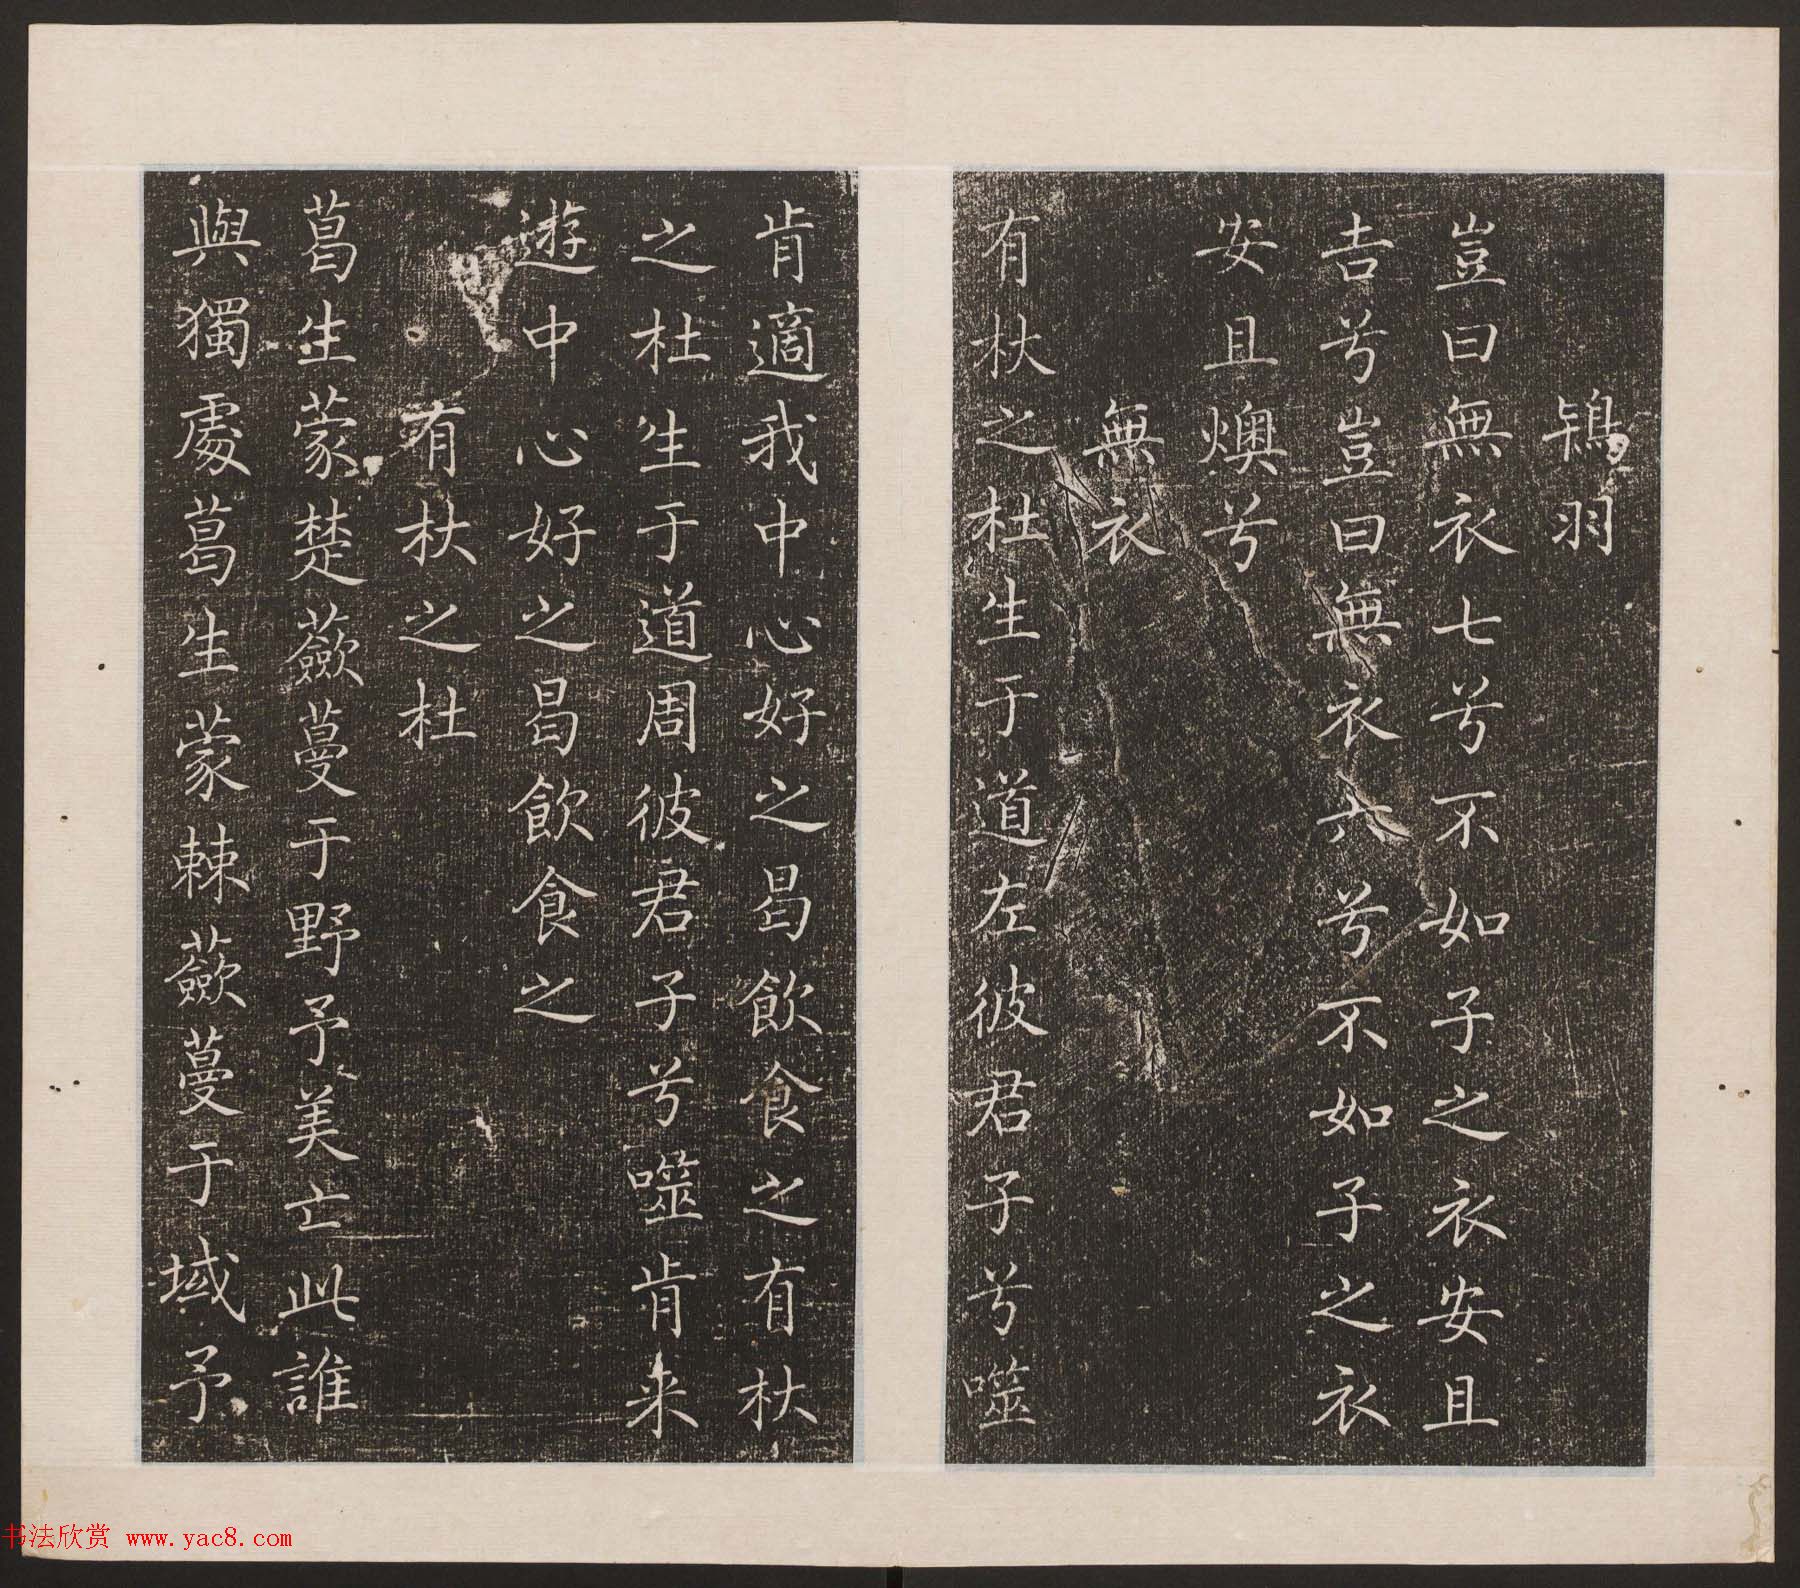 鴇羽
豈曰無衣七兮不如子之衣安且
吉兮豈曰無衣六兮不如子之衣
安且燠兮
無衣
有杕之杜生于道左彼君子兮噬
肯適我中心好之曷飲食之有杕
之杜生于道周彼君子兮噬肯来
遊中心好之曷飲食之
有杕之杜
葛生蒙楚蘞蔓于野予美亡此誰
與獨處葛生蒙棘蘞蔓于域予
书法欣赏 www.yac8.com